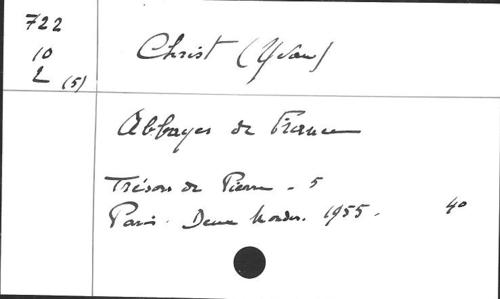 722
10
2 (5)
Christ (Yvan)
Abbayes de France
Trésors de Pierre - 5
Paris. Deux Mondes. 1955. 40